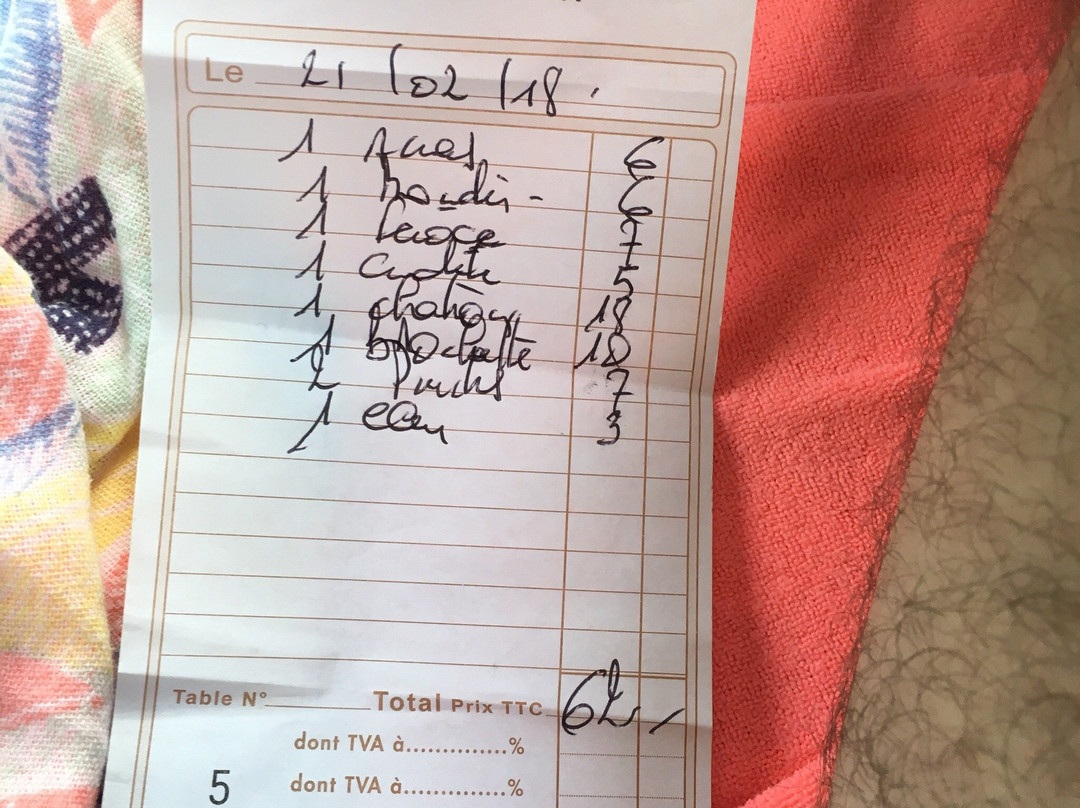 Le 21/02/18.
1 Acras 6
1 boudin - 6
1 feroce 7
1 Crudité 5
1 chatrou 18
1 brochette 10
2 Punchs 7
1 eau 3
Table N° Total Prix TTC 62,-
dont TVA à..............%
5 dont TVA à..............%